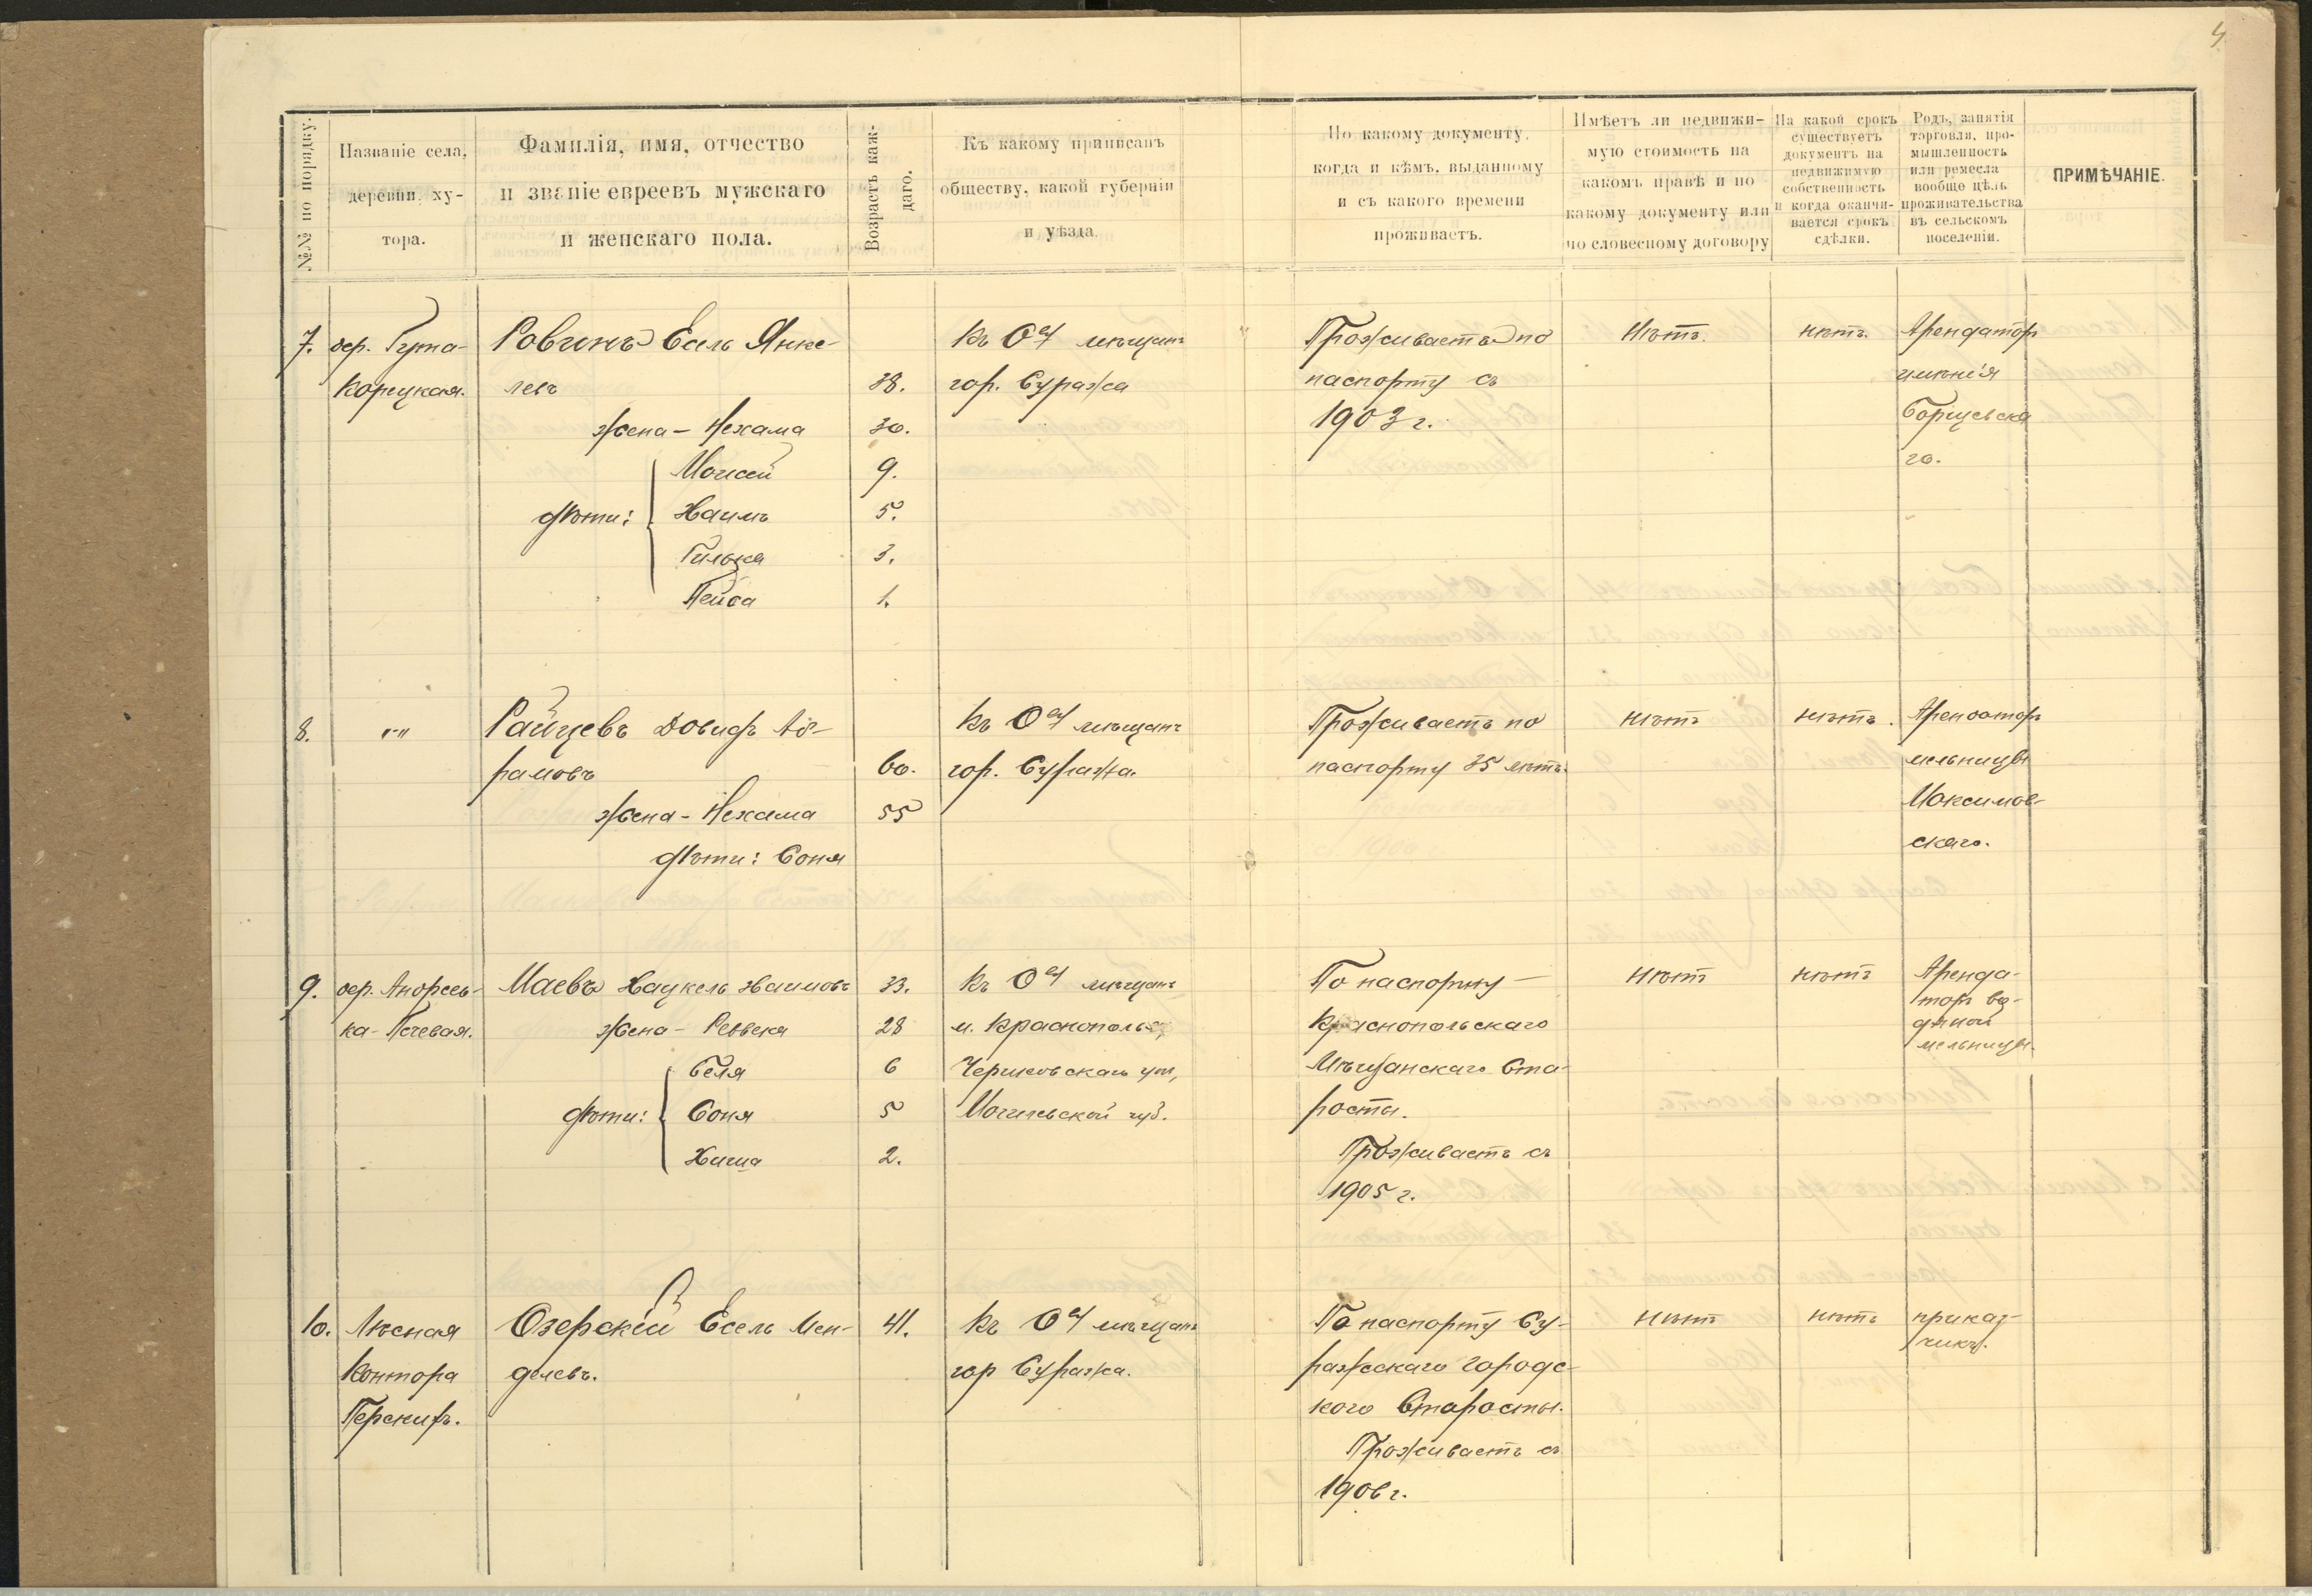 4
№№ по порядку.
Названіе села,
деревни, ху-
тора.
Фамилія, имя, отчество
и званіе евреевъ мужскаго
и женскаго пола.
Возрастъ каж-
даго.
Къ какому приписанъ
обществу, какой губерніи
и уѣзда.
По какому документу,
когда и кѣмъ, выданному
и съ какого времени
проживаетъ.
Имѣетъ ли недвижи-
мую стоимость на
какомъ правѣ и по
какому документу или
по словесному договору
На какой срокъ
существуетъ
документъ на
недвижимую
собственность
и когда оканчи-
вается срокъ
сдѣлки.
Родъ, занятія
торговля, про-
мышленность
или ремесла
вообще цѣль
проживательства
въ сельскомъ
поселеніи.
ПРИМѢЧАНІЕ.
7.
дер. Гута-
Корецкая.
Ровинъ Есель Янке-
левъ
38.
жена – Нехама
30.
дѣти:
Моисей
9.
Хаимъ
5.
Гилька
3.
Пейса
1.
Къ О-ву мѣщанъ
гор. Суража
Проживаетъ по
паспорту съ
1903 г.
Нѣтъ.
нѣтъ.
Арендаторъ
имѣнія
Борщевска
го.
8.
"
Райцевъ Довидъ Аб-
рамовъ
60.
жена – Нехама
55
дѣти: Соня
Къ О-ву мѣщанъ
гор. Суража.
Проживаетъ по
паспорту 35 лѣтъ.
нѣтъ
нѣтъ.
Арендаторъ
мельницы
Максимов-
скаго.
9.
дер. Андреев-
ка-Печевая.
Маевъ Хацкель Хаимовъ
33.
жена – Ревека
28
дѣти:
Беля
6
Соня
5
Хиша
2.
Къ О-ву мѣщанъ
м. Краснополья,
Чериковскаго у.,
Могилевской губ.
По паспорту –
Краснопольскаго
Мѣщанскаго Ста-
росты.
Проживаетъ съ
1905 г.
нѣтъ
нѣтъ
Аренда-
торъ во-
дяной
мельницы.
10.
Лѣсная
Контора
Перскиръ.
Озерскій Есель Мен-
делевъ.
41.
Къ О-ву мѣщанъ
гор Суража.
По паспорту Су-
ражскаго Городс-
кого Старосты.
Проживаетъ съ
1906 г.
нѣтъ
нѣтъ
приказ-
чикъ.